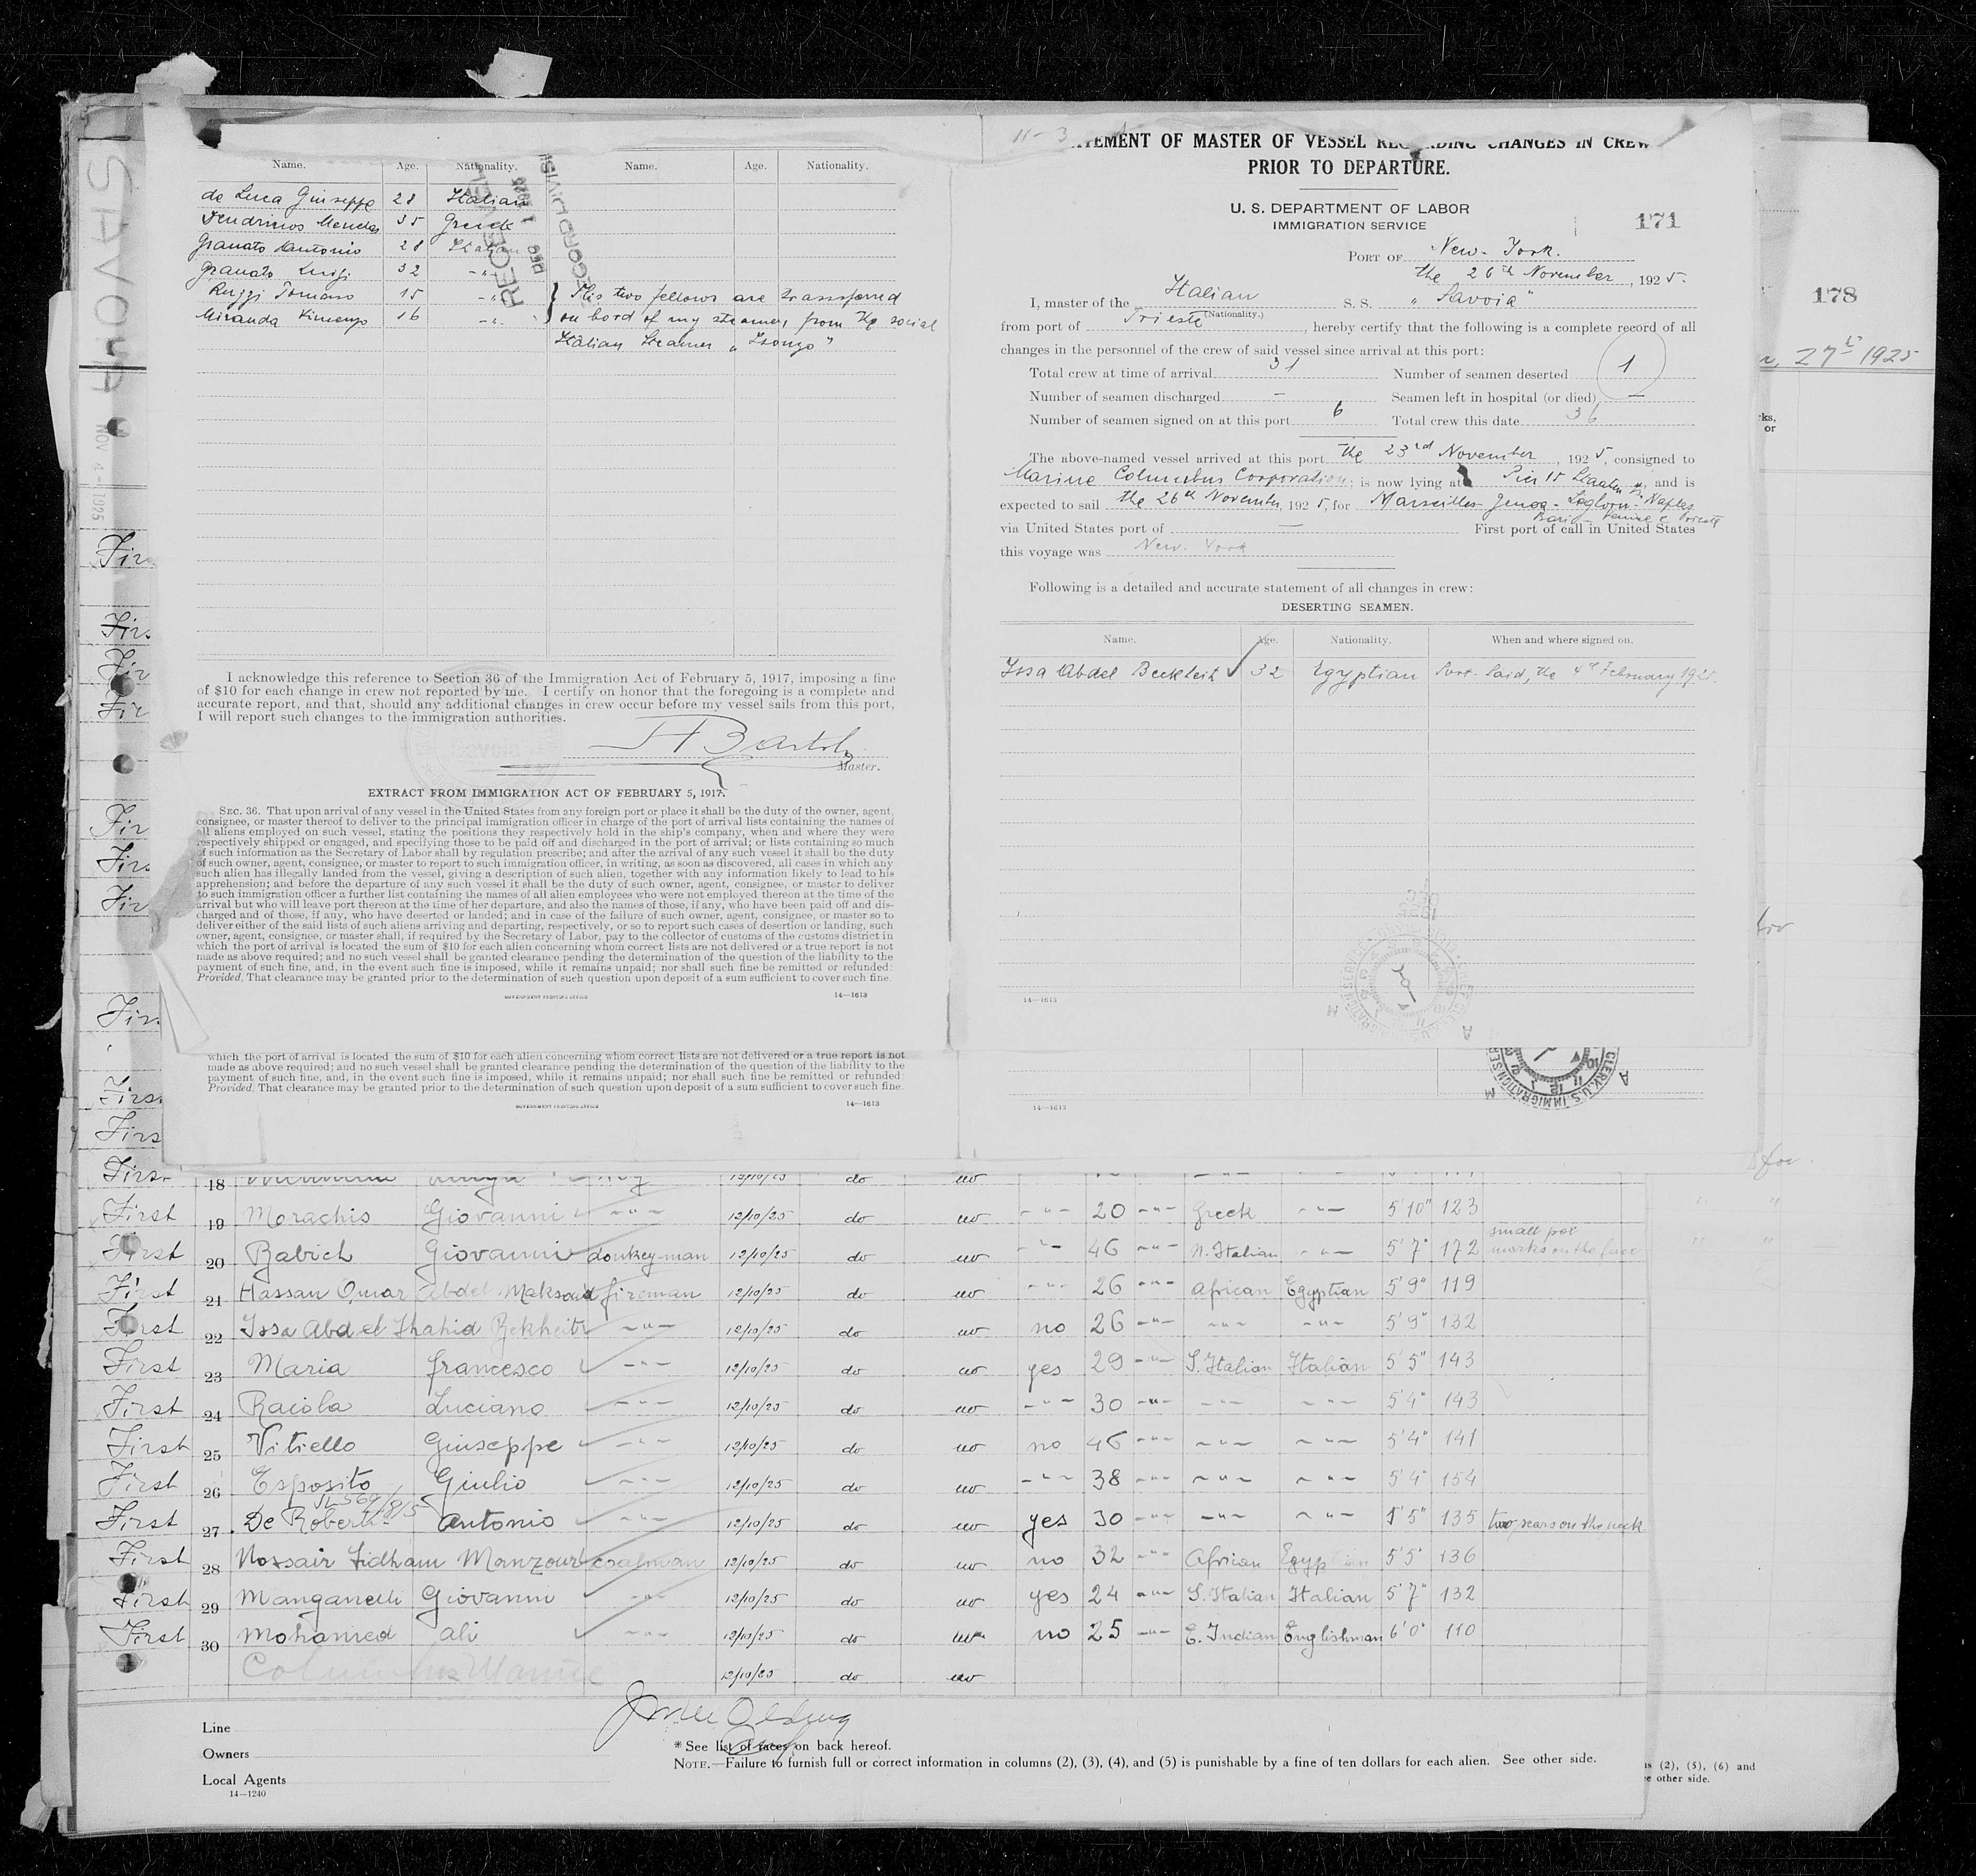 SAVOIA
NOV 4 - 1925
Name. Age. Nationality. Name. Age. Nationality.
de Luca Giuseppe 28 Italian
35 Greek
Granato Antonio 28 Italian
Granato Luigi 32 -"-
Ruggi Tomaso 15 -"- } This two fellows are transferred
Miranda 16 -"- } on bord of my steamer, from the social
Italian Steamer "Isonzo"
RECEIVED
DEC 1 1925
RECORD DIVIS
I acknowledge this reference to Section 36 of the Immigration Act of February 5, 1917, imposing a fine
of $10 for each change in crew not reported by me. I certify on honor that the foregoing is a complete and
accurate report, and that, should any additional changes in crew occur before my vessel sails from this port,
I will report such changes to the immigration authorities.
Master.
EXTRACT FROM IMMIGRATION ACT OF FEBRUARY 5, 1917.
SEC. 36. That upon arrival of any vessel in the United States from any foreign port or place it shall be the duty of the owner, agent,
consignee, or master thereof to deliver to the principal immigration officer in charge of the port of arrival lists containing the names of
all aliens employed on such vessel, stating the positions they respectively hold in the ship's company, when and where they were
respectively shipped or engaged, and specifying those to be paid off and discharged in the port of arrival; or lists containing so much
of such information as the Secretary of Labor shall by regulation prescribe; and after the arrival of any such vessel it shall be the duty
of such owner, agent, consignee, or master to report to such immigration officer, in writing, as soon as discovered, all cases in which any
such alien has illegally landed from the vessel, giving a description of such alien, together with any information likely to lead to his
apprehension; and before the departure of any such vessel it shall be the duty of such owner, agent, consignee, or master to deliver
to such immigration officer a further list containing the names of all alien employees who were not employed thereon at the time of the
arrival but who will leave port thereon at the time of her departure, and also the names of those, if any, who have been paid off and dis-
charged and of those, if any, who have deserted or landed; and in case of the failure of such owner, agent, consignee, or master so to
deliver either of the said lists of such aliens arriving and departing, respectively, or so to report such cases of desertion or landing, such
owner, agent, consignee, or master shall, if required by the Secretary of Labor, pay to the collector of customs of the customs district in
which the port of arrival is located the sum of $10 for each alien concerning whom correct lists are not delivered or a true report is not
made as above required; and no such vessel shall be granted clearance pending the determination of the question of the liability to the
payment of such fine, and, in the event such fine is imposed, while it remains unpaid; nor shall such fine be remitted or refunded:
Provided, That clearance may be granted prior to the determination of such question upon deposit of a sum sufficient to cover such fine.
GOVERNMENT PRINTING OFFICE 14—1613
which the port of arrival is located the sum of $10 for each alien concerning whom correct lists are not delivered or a true report is not
made as above required; and no such vessel shall be granted clearance pending the determination of the question of the liability to the
payment of such fine, and, in the event such fine is imposed, while it remains unpaid; nor shall such fine be remitted or refunded:
Provided, That clearance may be granted prior to the determination of such question upon deposit of a sum sufficient to cover such fine.
GOVERNMENT PRINTING OFFICE 14—1613
11-3
TEMENT OF MASTER OF VESSEL REGARDING CHANGES IN CREW
PRIOR TO DEPARTURE.
U. S. DEPARTMENT OF LABOR
IMMIGRATION SERVICE
171
PORT OF New-York.
the 26th November, 1925.
I, master of the Italian S. S. "Savoia"
(Nationality.)
from port of Trieste, hereby certify that the following is a complete record of all
changes in the personnel of the crew of said vessel since arrival at this port:
Total crew at time of arrival 31 Number of seamen deserted 1
Number of seamen discharged - Seamen left in hospital (or died) -
Number of seamen signed on at this port 6 Total crew this date 36
The above-named vessel arrived at this port the 23rd November, 1925, consigned to
Marine Columbus Corporation; is now lying at Pier 15, and is
expected to sail the 26th November, 1925, for Marseilles-Genoa-Leghorn-Naples
Bari - Venice e Trieste
via United States port of — First port of call in United States
this voyage was New-York
Following is a detailed and accurate statement of all changes in crew:
DESERTING SEAMEN.
Name. Age. Nationality. When and where signed on.
Issa Abdel Beckheit ✓ 32 Egyptian Port-Said, the 4th February 1925.
14—1613
14—1613
178
27th 1925
ks,
or
for
First 18 12/10/25 do
First 19 Morachis Giovanni -"- 12/10/25 do -"- 20 -"- Greek -"- 5'10" 123
First 20 Babich Giovanni donkey-man 12/10/25 do -"- 46 -"- N. Italian -"- 5'7" 172 small pox marks on the face
First 21 Hassan Omar Abdel Maksoud fireman 12/10/25 do -"- 26 -"- African Egyptian 5'9" 119
First 22 Issa Abd el Shahid Bekheit -"- 12/10/25 do no 26 -"- -"- -"- 5'9" 132
First 23 Maria Francesco -"- 12/10/25 do yes 29 -"- S. Italian Italian 5'5" 143
First 24 Raiola Luciano -"- 12/10/25 do -"- 30 -"- -"- -"- 5'4" 143
First 25 Vitiello Giuseppe -"- 12/10/25 do no 46 -"- -"- -"- 5'4" 141
First 26 Esposito Giulio -"- 12/10/25 do -"- 38 -"- -"- -"- 5'4" 154
First 27 De Robertis Antonio -"- 12/10/25 do yes 30 -"- -"- -"- 5'5" 135 two scars on the neck
First 28 Nossair Fidham Manzour coalman 12/10/25 do no 32 -"- African Egyptian 5'5" 136
First 29 Manganelli Giovanni -"- 12/10/25 do yes 24 -"- S. Italian Italian 5'7" 132
First 30 Mohamed Ali -"- 12/10/25 do no 25 -"- E. Indian Englishman 6'0" 110
Columbus Marine 12/10/25 do
Line
Owners
Local Agents
14—1240
* See list of races on back hereof.
NOTE.—Failure to furnish full or correct information in columns (2), (3), (4), and (5) is punishable by a fine of ten dollars for each alien. See other side.
ns (2), (5), (6) and
e other side.